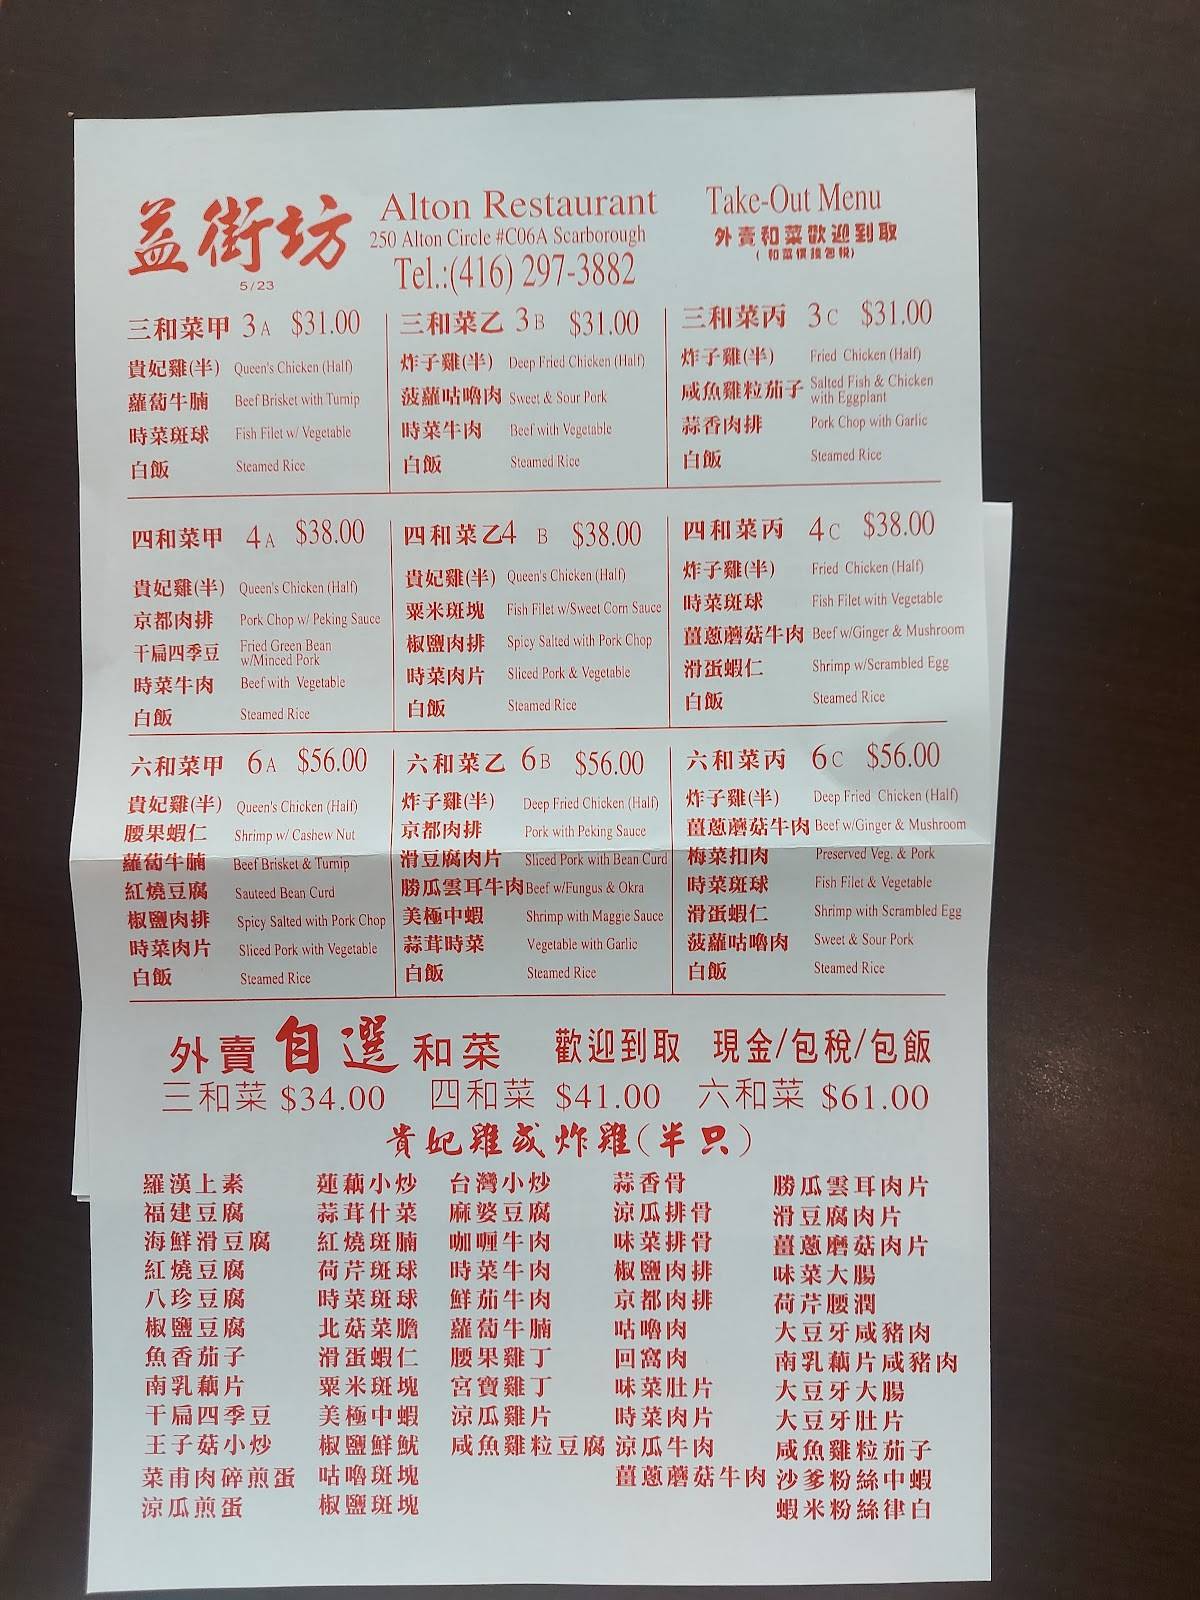 益街坊
5/23
Alton Restaurant
250 Alton Circle #C06A Scarborough
Tel.:(416) 297-3882
Take-Out Menu
外賣和菜歡迎到取
三和菜甲 3A $31.00
貴妃雞(半) Queen's Chicken (Half)
蘿蔔牛腩 Beef Brisket with Turnip
時菜斑球 Fish Filet w/ Vegetable
白飯 Steamed Rice
三和菜乙 3B $31.00
炸子雞(半) Deep Fried Chicken (Half)
菠蘿咕嚕肉 Sweet & Sour Pork
時菜牛肉 Beef with Vegetable
白飯 Steamed Rice
三和菜丙 3C $31.00
炸子雞(半) Fried Chicken (Half)
咸魚雞粒茄子 Salted Fish & Chicken
with Eggplant
蒜香肉排 Pork Chop with Garlic
白飯 Steamed Rice
四和菜甲 4A $38.00
貴妃雞(半) Queen's Chicken (Half)
京都肉排 Pork Chop w/ Peking Sauce
干扁四季豆 Fried Green Bean
w/Minced Pork
時菜牛肉 Beef with Vegetable
白飯 Steamed Rice
四和菜乙4 B $38.00
貴妃雞(半) Queen's Chicken (Half)
粟米斑塊 Fish Filet w/Sweet Corn Sauce
椒鹽肉排 Spicy Salted with Pork Chop
時菜肉片 Sliced Pork & Vegetable
白飯 Steamed Rice
四和菜丙 4C $38.00
炸子雞(半) Fried Chicken (Half)
時菜斑球 Fish Filet with Vegetable
薑蔥蘑菇牛肉 Beef w/Ginger & Mushroom
滑蛋蝦仁 Shrimp w/Scrambled Egg
白飯 Steamed Rice
六和菜甲 6A $56.00
貴妃雞(半) Queen's Chicken (Half)
腰果蝦仁 Shrimp w/ Cashew Nut
蘿蔔牛腩 Beef Brisket & Turnip
紅燒豆腐 Sauteed Bean Curd
椒鹽肉排 Spicy Salted with Pork Chop
時菜肉片 Sliced Pork with Vegetable
白飯 Steamed Rice
六和菜乙 6B $56.00
炸子雞(半) Deep Fried Chicken (Half)
京都肉排 Pork with Peking Sauce
滑豆腐肉片 Sliced Pork with Bean Curd
勝瓜雲耳牛肉 Beef w/Fungus & Okra
美極中蝦 Shrimp with Maggie Sauce
蒜茸時菜 Vegetable with Garlic
白飯 Steamed Rice
六和菜丙 6C $56.00
炸子雞(半) Deep Fried Chicken (Half)
薑蔥蘑菇牛肉 Beef w/Ginger & Mushroom
梅菜扣肉 Preserved Veg. & Pork
時菜斑球 Fish Filet & Vegetable
滑蛋蝦仁 Shrimp with Scrambled Egg
菠蘿咕嚕肉 Sweet & Sour Pork
白飯 Steamed Rice
外賣自選和菜 歡迎到取 現金/包稅/包飯
三和菜 $34.00 四和菜 $41.00 六和菜 $61.00
貴妃雞或炸雞(半只)
羅漢上素
福建豆腐
海鮮滑豆腐
紅燒豆腐
八珍豆腐
椒鹽豆腐
魚香茄子
南乳藕片
干扁四季豆
王子菇小炒
菜甫肉碎煎蛋
涼瓜煎蛋
蓮藕小炒
蒜茸什菜
紅燒斑腩
荷芹斑球
時菜斑球
北菇菜膽
滑蛋蝦仁
粟米斑塊
美極中蝦
椒鹽鮮魷
咕嚕斑塊
椒鹽斑塊
台灣小炒
麻婆豆腐
咖喱牛肉
時菜牛肉
鮮茄牛肉
蘿蔔牛腩
腰果雞丁
宮寶雞丁
涼瓜雞片
咸魚雞粒豆腐
蒜香骨
涼瓜排骨
味菜排骨
椒鹽肉排
京都肉排
咕嚕肉
回窩肉
味菜肚片
時菜肉片
涼瓜牛肉
薑蔥蘑菇牛肉
勝瓜雲耳肉片
滑豆腐肉片
薑蔥磨菇肉片
味菜大腸
荷芹腰潤
大豆牙咸豬肉
南乳藕片咸豬肉
大豆牙大腸
大豆牙肚片
咸魚雞粒茄子
沙爹粉絲中蝦
蝦米粉絲律白